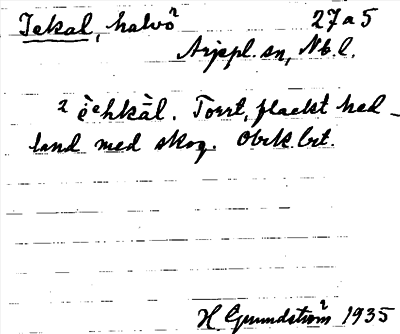 Jekal, halvö 27a5
Arjepl. sn, Nb. l.
² è̄hkàl. Torrt, flackt hed-
land med skog. Obrk. brt.
H. Grundström 1935